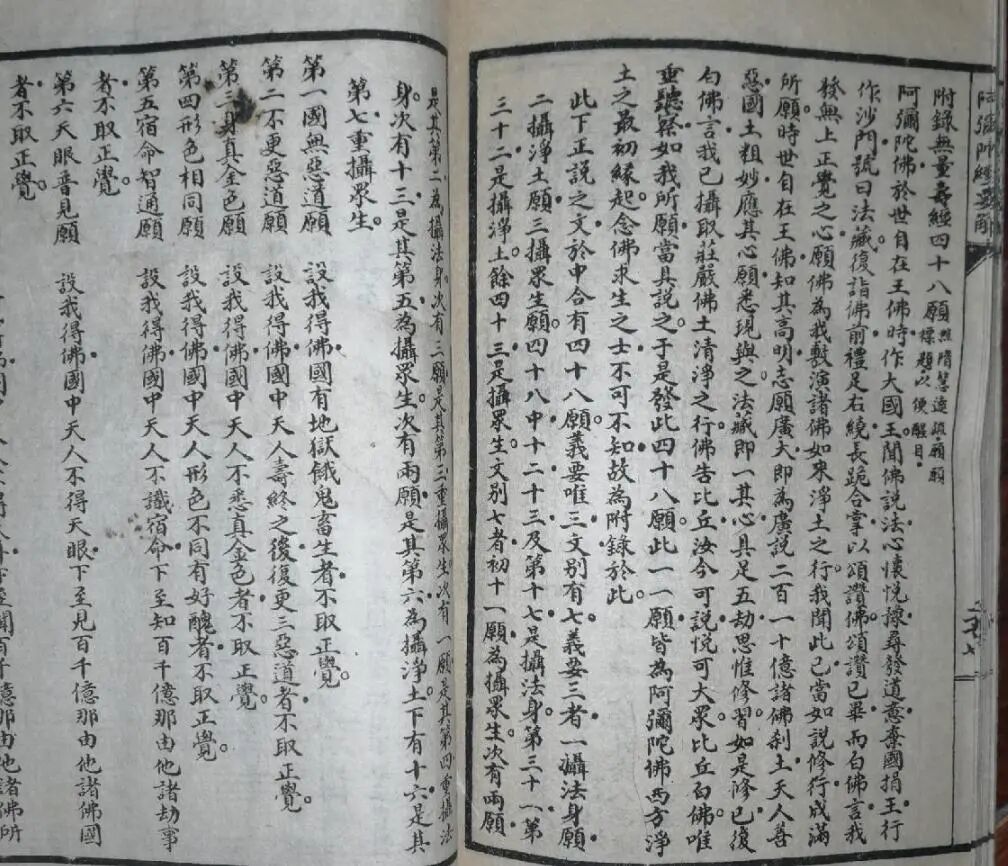 附錄無量壽經四十八願 照隋慧遠疏 願願標題以便醒目
阿彌陀佛於世自在王佛時作大國王聞佛說法心懷悅豫尋發道意棄國捐王行
作沙門號曰法藏復詣佛前禮足右繞長跪合掌以頌讚佛頌讚已畢而白佛言我
發無上正覺之心願佛為我敷演諸佛如來淨土之行我聞此已當如說修行成滿
所願時世自在王佛知其高明志願廣大即為廣說二百一十億諸佛剎土天人善
惡國土粗妙應其心願悉現與之法藏即一其心具足五劫思惟修習如是修已復
白佛言我已攝取莊嚴佛土清淨之行佛告比丘汝今可說悅可大眾比丘白佛唯
垂聽察如我所願當具說之于是發此四十八願此一一願皆為阿彌陀佛西方淨
土之最初緣起念佛求生之士不可不知故為附錄於此
此下正說之文於中合有四十八願義要唯三文別有七義要三者一攝法身願
二攝淨土願三攝眾生願四十八中十二十三及第十七是攝法身第三十一第
三十二是攝淨土餘四十三是攝眾生文別七者初十一願為攝眾生次有兩願
是其第二為攝法身次有三願是其第三重攝眾生次有一願是其第四重攝法
身次有十三是其第五為攝眾生次有兩願是其第六為攝淨土下有十六是其
第七重攝眾生
第一國無惡道願 設我得佛國有地獄餓鬼畜生者不取正覺
第二不更惡道願 設我得佛國中天人壽終之後復更三惡道者不取正覺
第三身真金色願 設我得佛國中天人不悉真金色者不取正覺
第四形色相同願 設我得佛國中天人形色不同有好醜者不取正覺
第五宿命智通願 設我得佛國中天人不識宿命下至知百千億那由他諸劫事
者不取正覺
第六天眼普見願 設我得佛國中天人不得天眼下至見百千億那由他諸佛國
者不取正覺